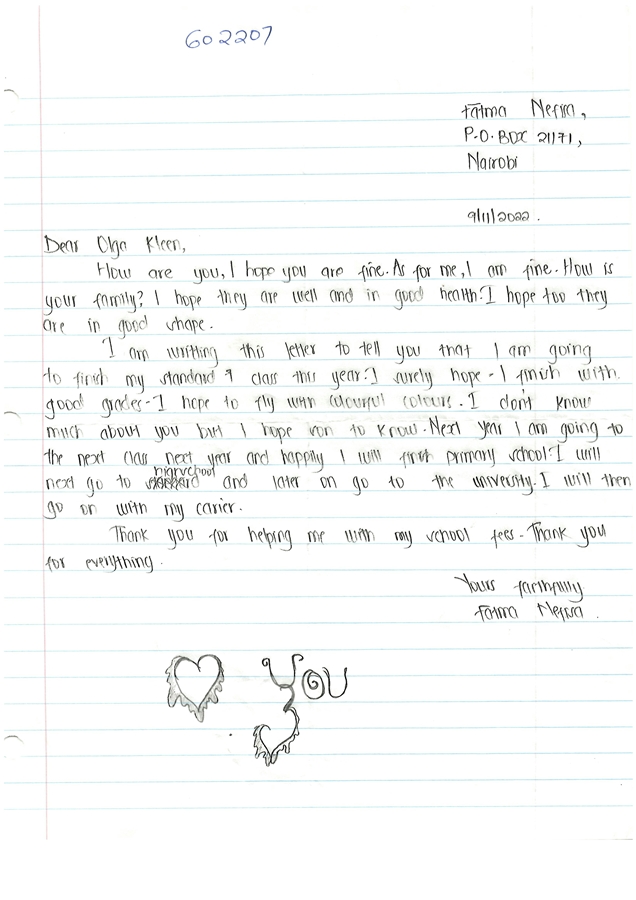 602207
Fatma Nefisa,
P.O.BOX 21171,
Nairobi
9/11/2022.
Dear Olga Kleen,
How are you, I hope you are fine. As for me, I am fine. How is
your family? I hope they are well and in good health. I hope too they
are in good shape.
I am writting this letter to tell you that I am going
to finish my standard 7 class this year. I surely hope I finish with
good grades. I hope to fly with colourful colours. I don't know
much about you but I hope to know. Next year I am going to
the next class next year and happily I will finish primary school. I will
next go to highschool and later on go to the university. I will then
go on with my carier.
Thank you for helping me with my school fees. Thank you
for everything.
Yours faithfully
Fatma Nefisa.
YOU